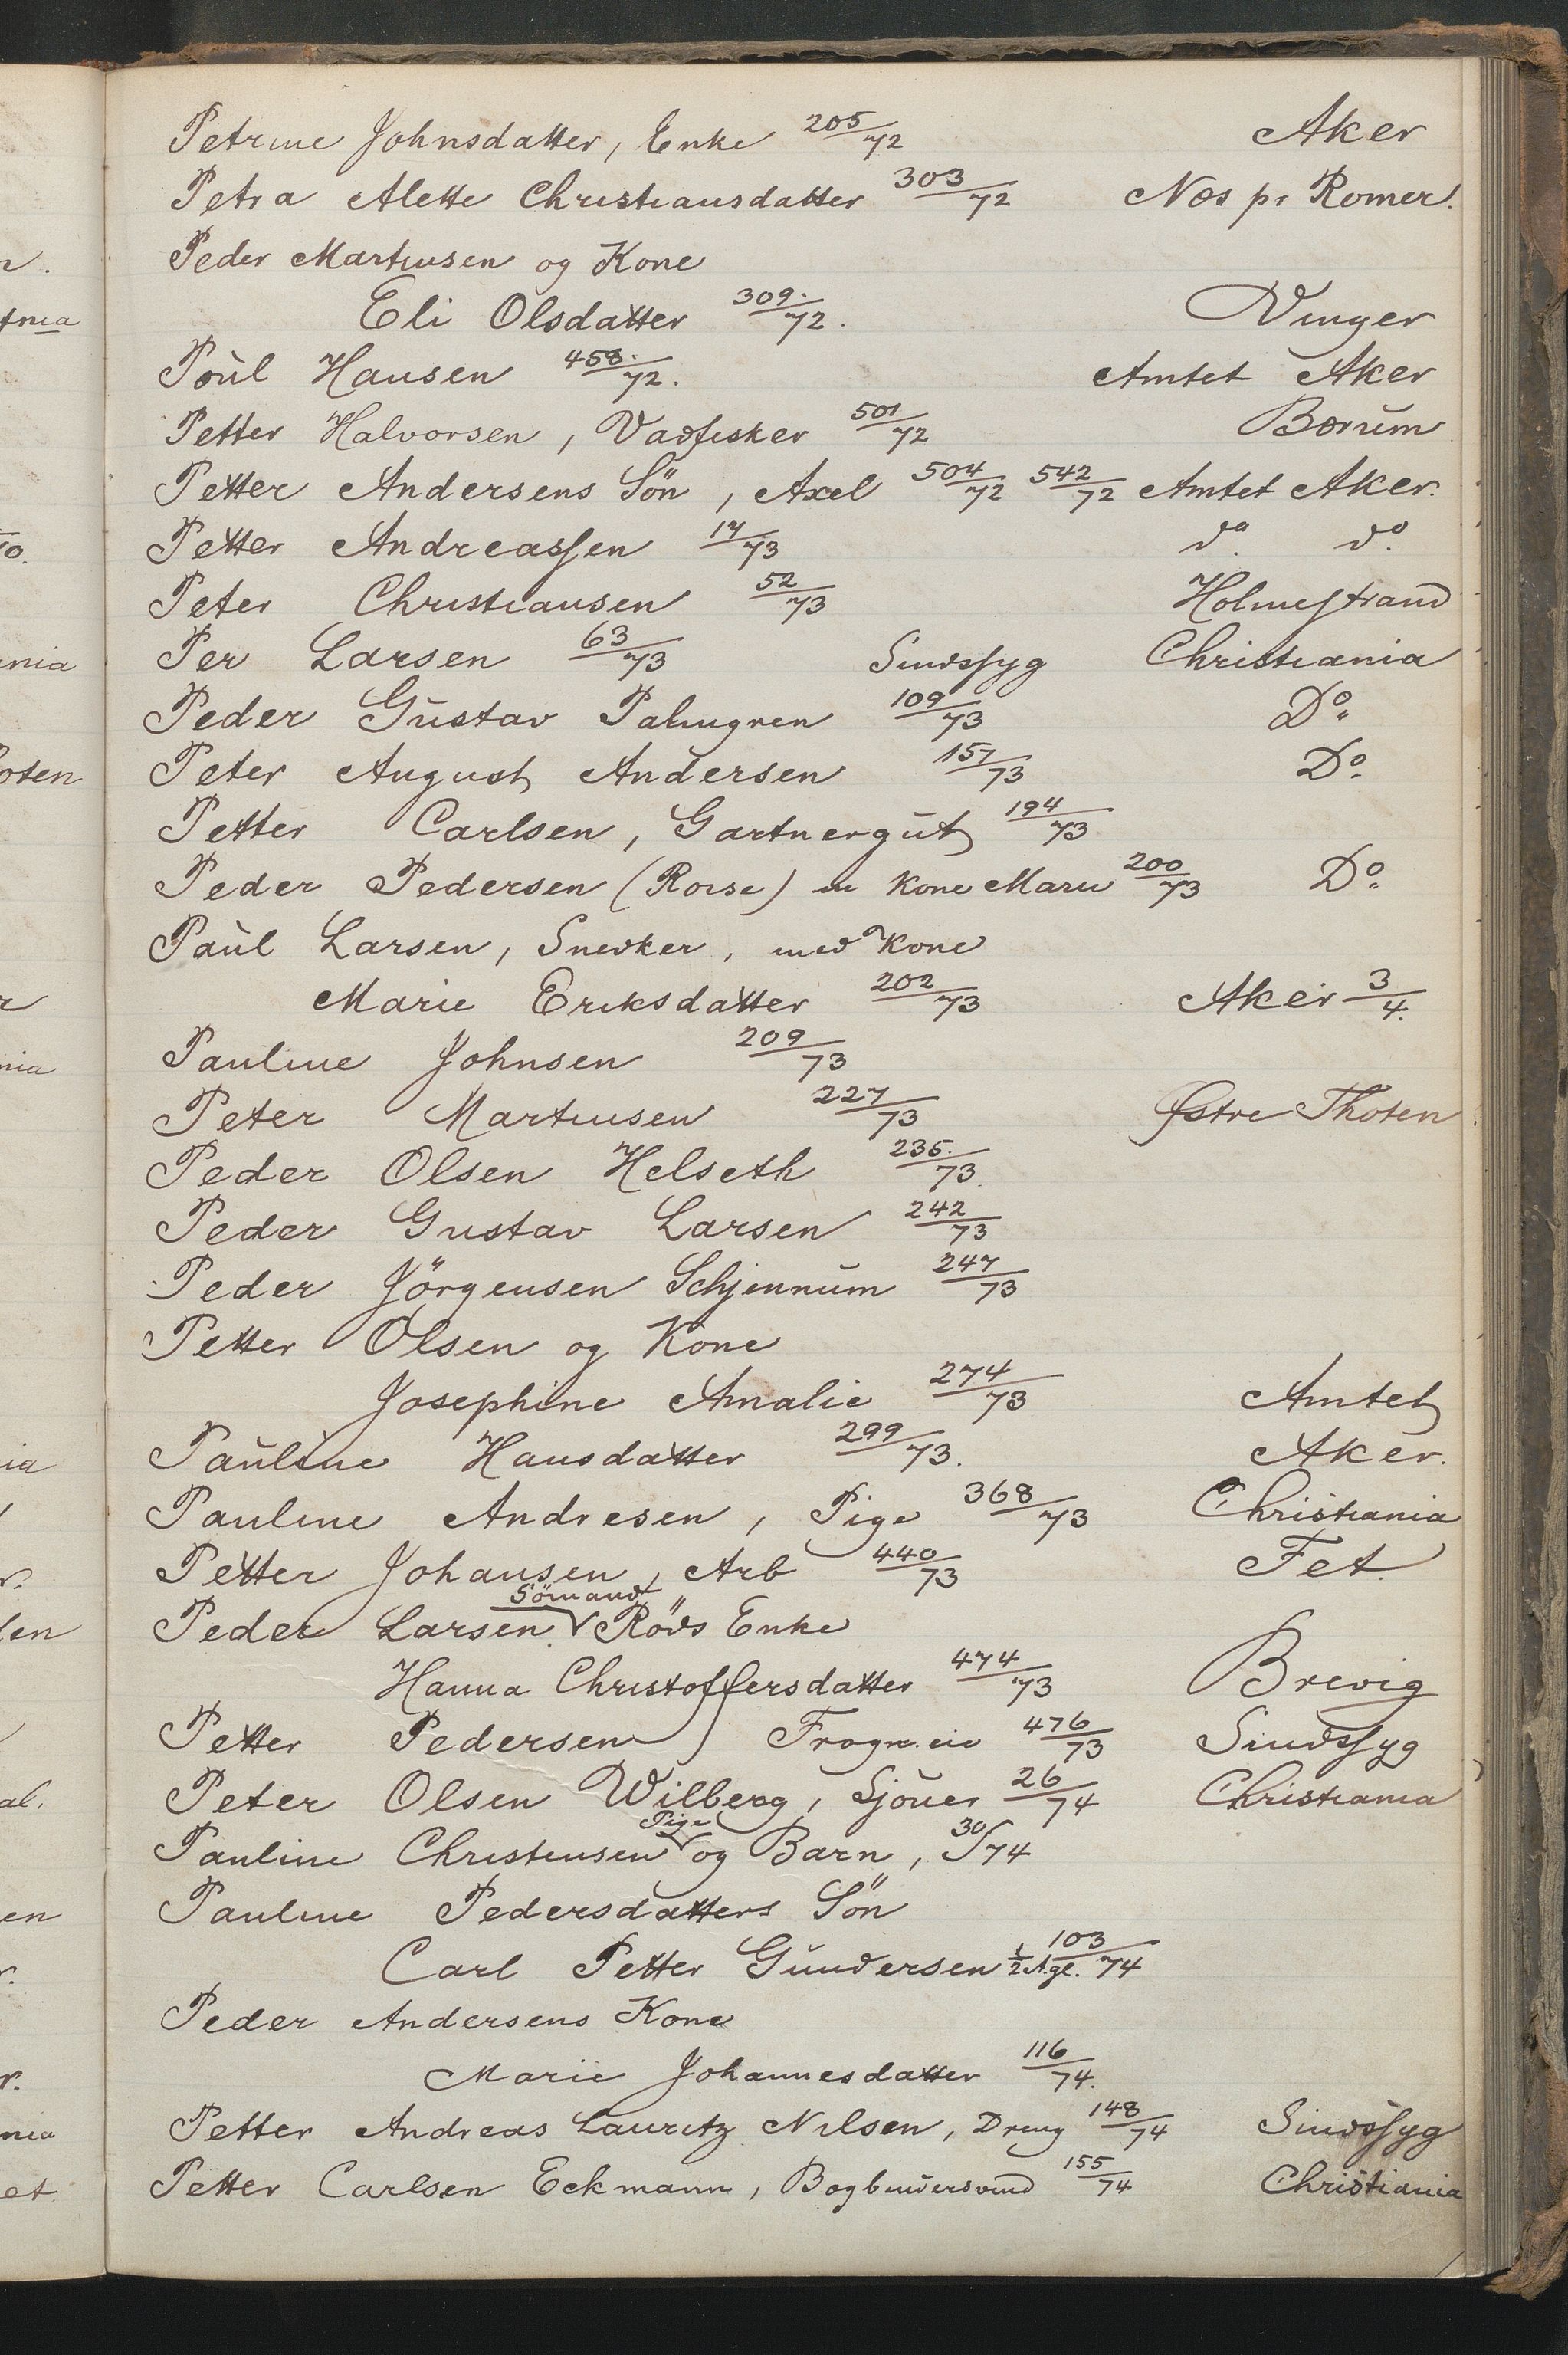 Petrine Johnsdatter, Enke 205/72 Aker
Petra Alette Christiansdatter 303/72 Næs pr Romer.
Peder Martinsen og Kone
Eli Olsdatter 309./72. Vinger
Poul Hansen 458./72. Amtet Aker
Petter Halvorsen, Vadfisker 501/72 Bærum
Petter Andersens Sön, Axel 504/72 542/72 Amtet Aker.
Petter Andreassen 17/73 do. do.
Peter Christiansen 52/73 Holmestrand
Per Larsen 63/73 Sindssyg Christiania
Peder Gustav Palmgren 109/73 Do.
Peter August Andersen 157/73 Do.
Petter Carlsen, Gartnergut 194/73
Peder Pedersen (Roise) m Kone Marie 200/73 Do.
Paul Larsen, Snedker, med Kone
Marie Eriksdatter 202/73 Aker 3/4.
Pauline Johnsen 209/73
Peter Martinsen 227/73 Østre Thoten
Peder Olsen Helseth 235./73.
Peder Gustav Larsen 242/73
Peder Jörgensen Schjennum 247/73
Petter Olsen og Kone
Josephine Amalie 274/73 Amtet
Pauline Hansdatter 299/73. Aker.
Pauline Andresen, Pige 368/73 Christiania
Petter Johansen, Arb 440/73 Fet.
Peder Larsen Sömand Röds Enke
Hanna Christoffersdatter 474/73 Brevig
Petter Pedersen 476/73 Sindssyg
Peter Olsen Wilberg, Sjouer 26/74 Christiania
Pauline Christensen Pige og Barn, 30/74
Pauline Pedersdatters Sön
Carl Petter Gundersen 1/2 A. gl. 103/74
Peder Andersens Kone
Marie Johannesdatter 116/74.
Petter Andreas Lauritz Nilsen, Dreng 148/74 Sindssyg
Petter Carlsen Eckmann, Bogbindersvend 155/74 Christiania